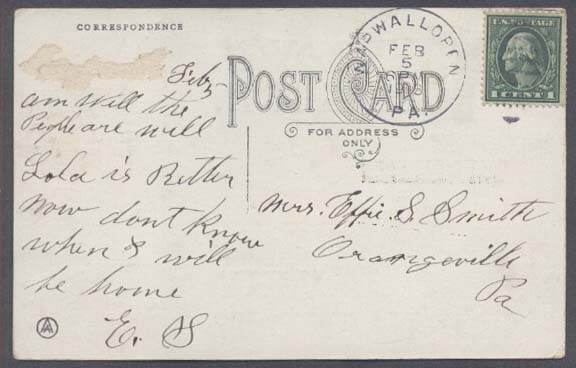 CORRESPONDENCE
POST CARD
FOR ADDRESS
ONLY
WAPWALLOPEN
FEB
5
PA.
U.S. POSTAGE
1 CENT 1
Feb 5
am well the
People are well
Lola is Better
now dont know
when I will
be home
E. S
Mrs. Effie S. Smith
Orangeville
Pa